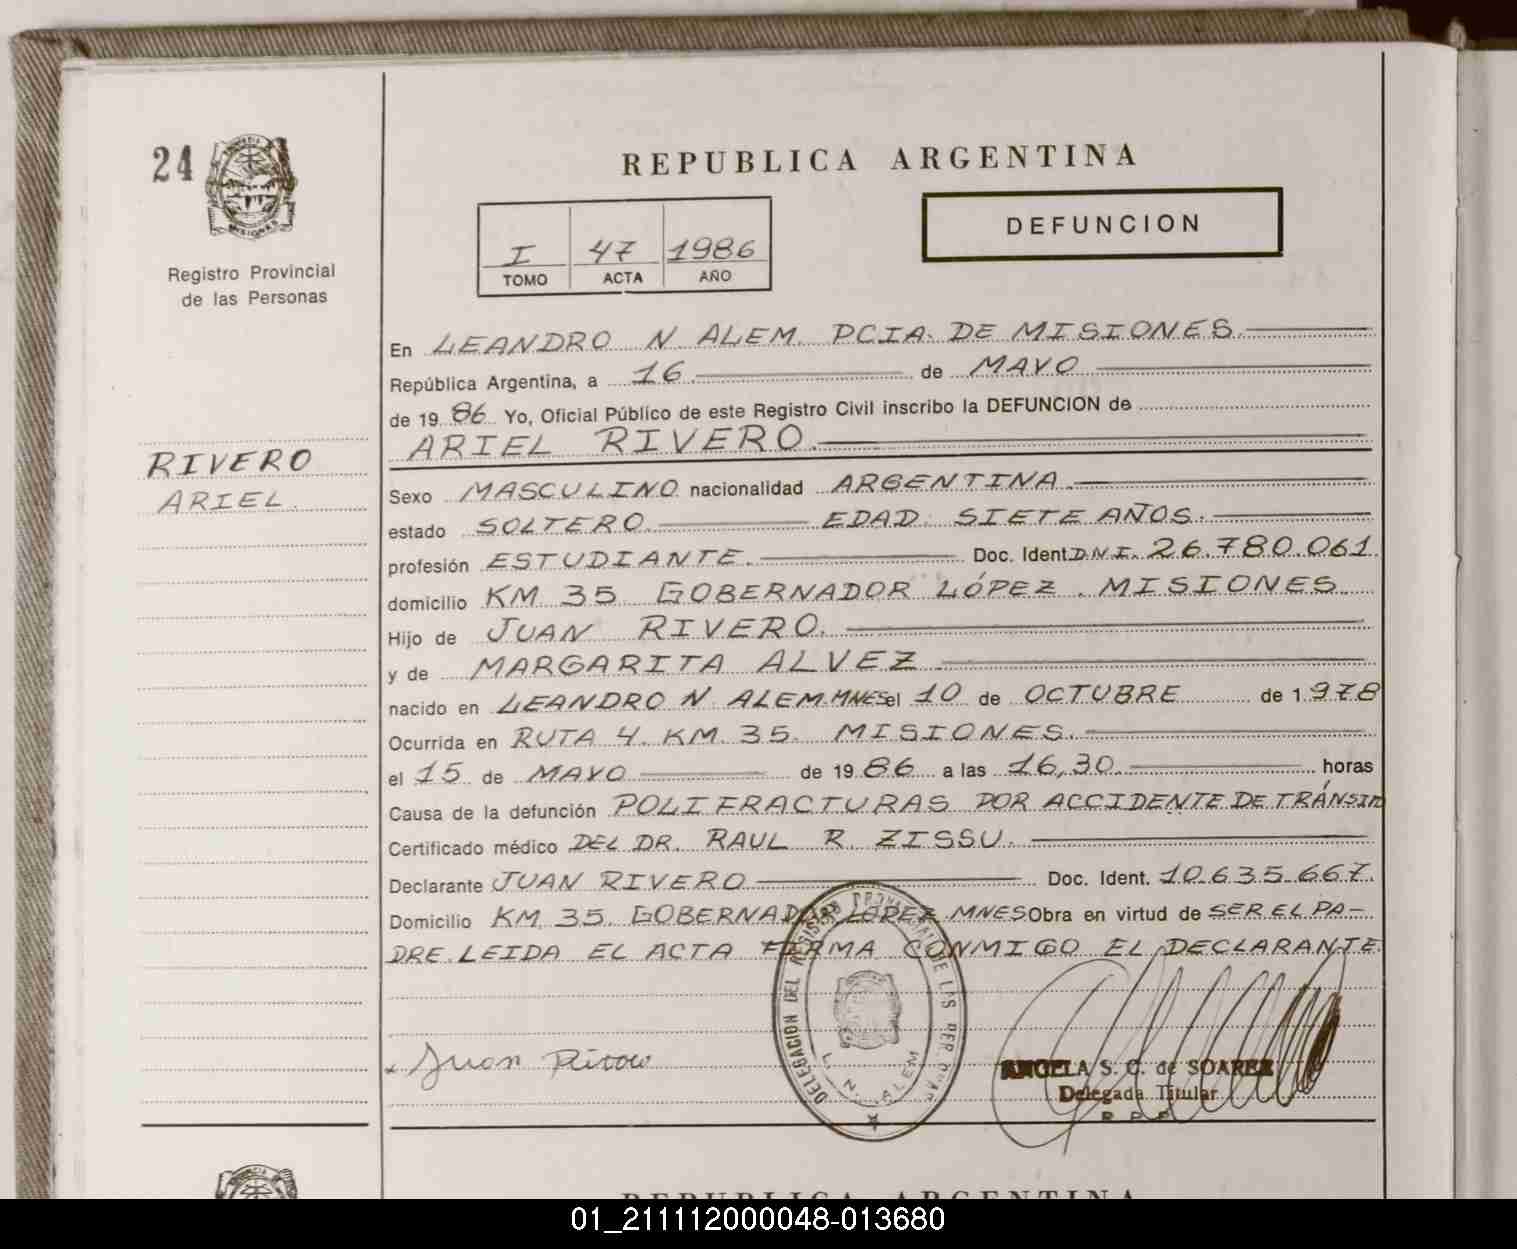 24
MISIONES
Registro Provincial
de las Personas
RIVERO
ARIEL.
REPUBLICA ARGENTINA
I 47 1986
TOMO ACTA AÑO
DEFUNCION
En LEANDRO N ALEM. PCIA. DE MISIONES.
República Argentina, a 16 de MAYO
de 19 86 Yo, Oficial Público de este Registro Civil inscribo la DEFUNCION de
ARIEL RIVERO.
Sexo MASCULINO nacionalidad ARGENTINA.
estado SOLTERO. EDAD: SIETE AÑOS.
profesión ESTUDIANTE. Doc. Ident. D.N.I. 26.780.061
domicilio KM. 35. GOBERNADOR LÓPEZ. MISIONES
Hijo de JUAN RIVERO.
y de MARGARITA ALVEZ
nacido en LEANDRO N. ALEM. MNES el 10 de OCTUBRE de 1.978
Ocurrida en RUTA 4. KM. 35. MISIONES.
el 15 de MAYO de 19 86 a las 16,30. horas
Causa de la defunción POLIFRACTURAS POR ACCIDENTE DE TRÁNSITO
Certificado médico DEL DR. RAUL R. ZISSU.
Declarante JUAN RIVERO Doc. Ident. 10.635.667.
Domicilio KM. 35. GOBERNADOR LÓPEZ MNES Obra en virtud de SER EL PA-
DRE. LEIDA EL ACTA FIRMA CONMIGO EL DECLARANTE.
x Juan Rivero
DELEGACION DEL REGISTRO PROVINCIAL DE LAS PERSONAS
L. N. ALEM
ANGELA S. C. de SOAREZ
Delegada Titular
R. P. P.
REPUBLICA ARGENTINA
01_211112000048-013680